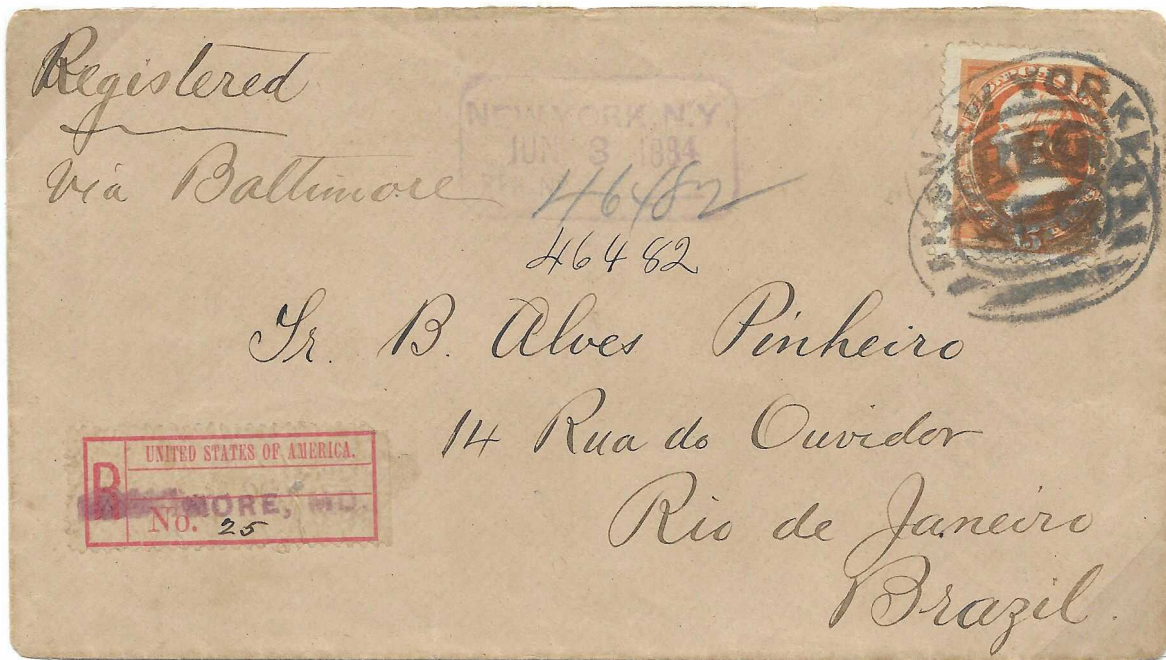 Registered
NEW YORK, N.Y.
JUN 3 1884
Via Baltimore
46482
46482
NEW YORK
REG
15
Sr. B. Alves Pinheiro
14 Rua do Ouvidor
Rio de Janeiro
Brazil.
UNITED STATES OF AMERICA.
R
MORE, MD.
No. 25